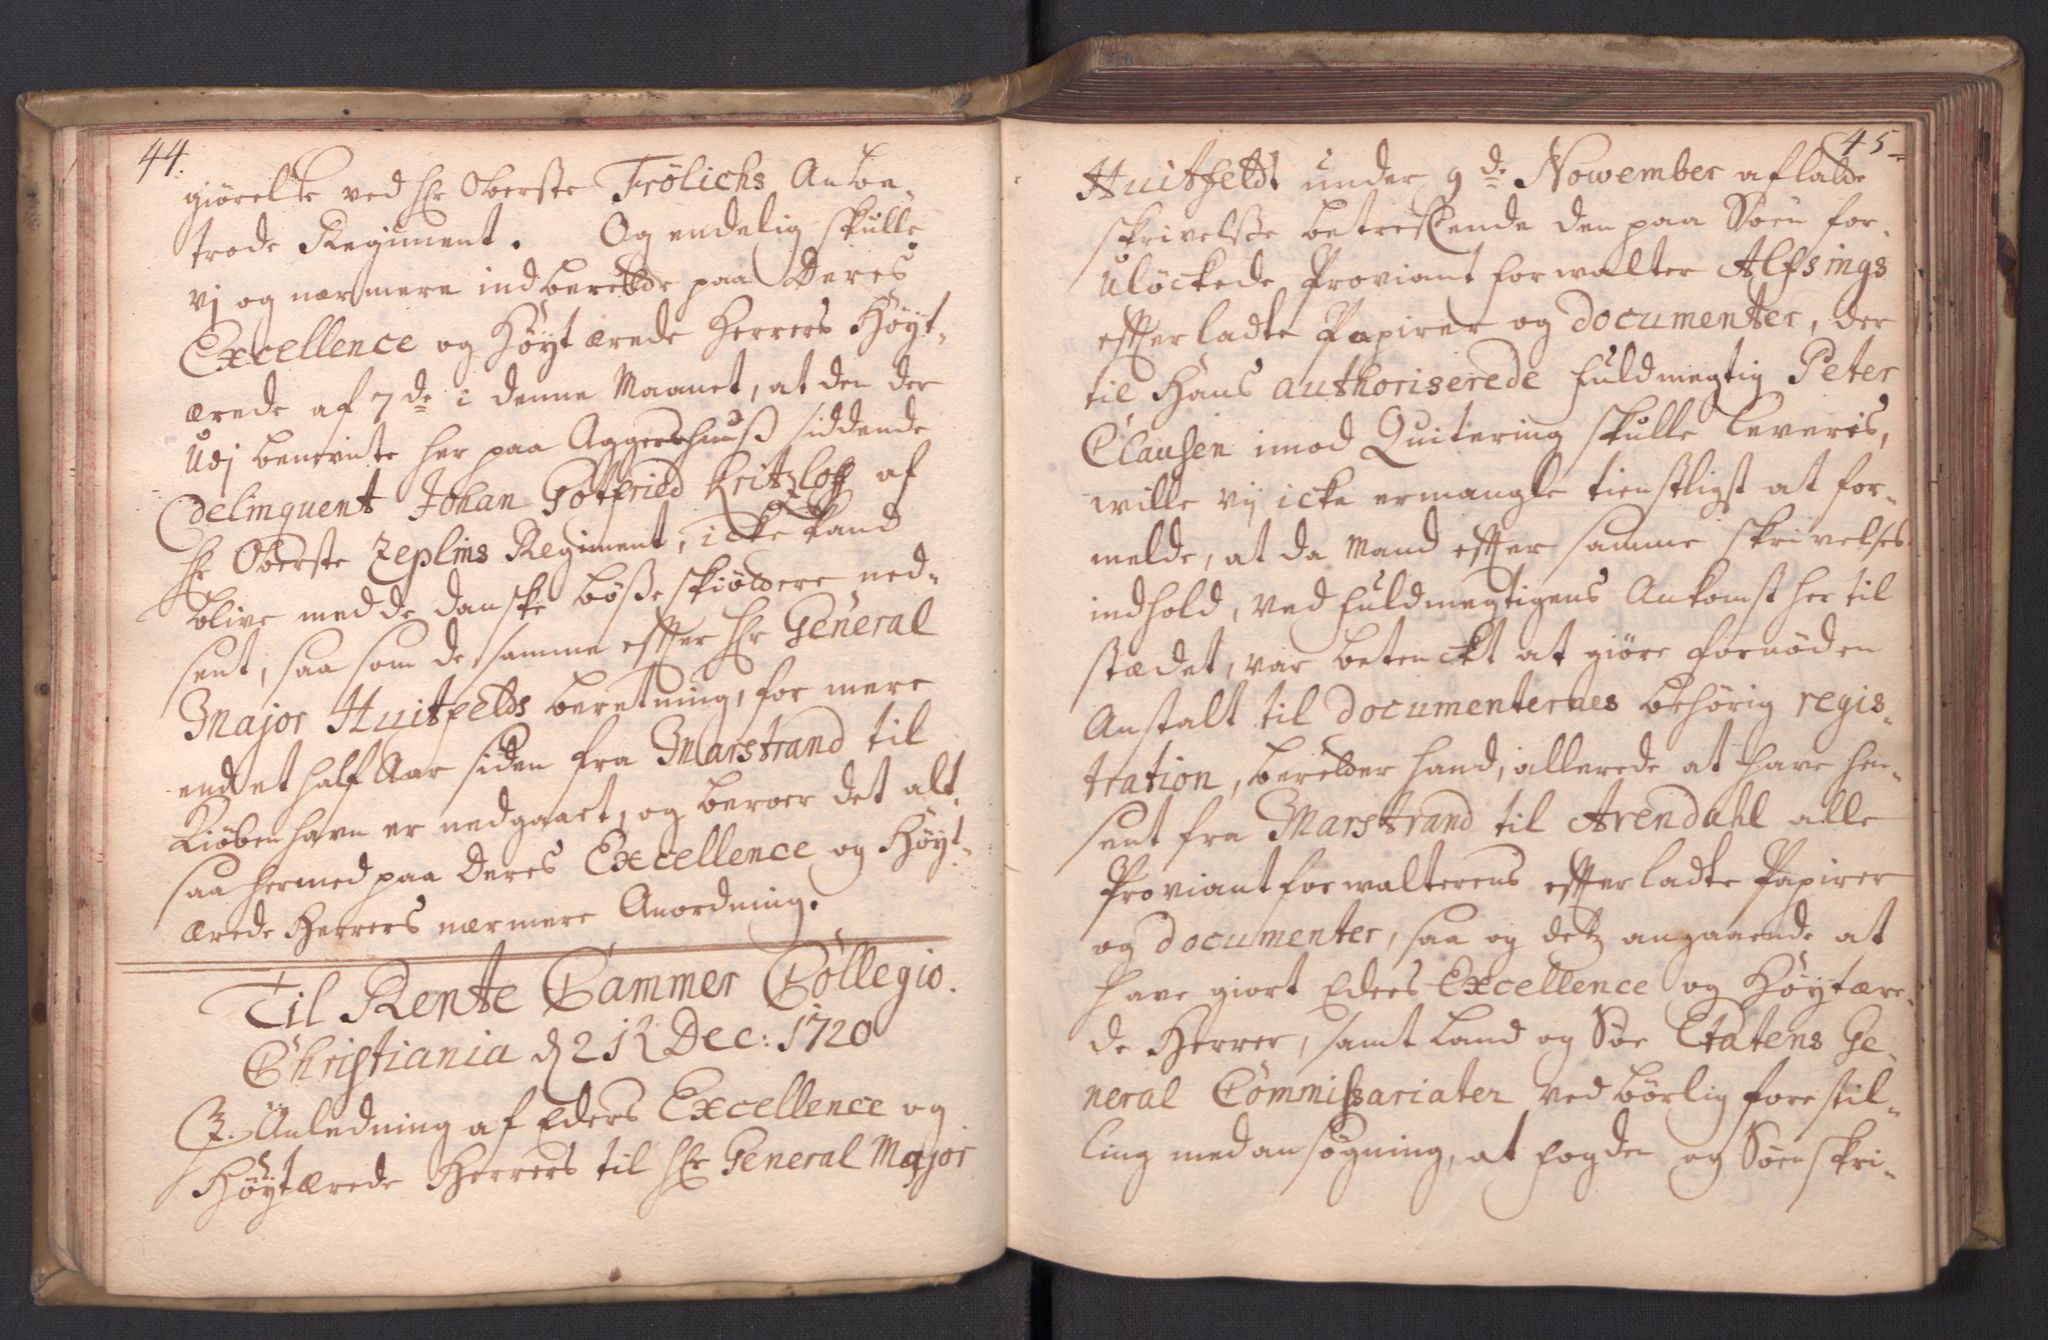 44.
giörelse ved hr Oberste Frölichs Anbe-
trode Regiment. Og endelig skulle
vj og nærmere indberette paa Deres
Excellence og Höyt ærede Herrers Höyt-
ærede af 7de i denne Maanet, at den der
Udj benevnte her paa Aggershuuß siddende
delinquent Johan Gotfried Kritzloff af
hr Oberste Zeplins Regiment, icke kand
blive med de danske bösseskiöttere ned-
sent, saa som de samme effter hr General
Major Huitfelds beretning, for mere
end et half Aar siden fra Marstrand til
Kiöbenhavn er nedgaaet, og beroer det alt
saa hermed paa Deres Excellence og Höyt-
ærede Herrers nærmere Anordning.
Til Rente Cammer Collegio.
Christiania d 21 Dec: 1720
J. Anledning af Eders Excellence og
Höytærede Herrers til hr General Major
45
Huitfeldt under 9de Nowember afladte
skrivelße betreffende den paa Söen for-
ulöckede Proviantforwalter Alfsings
effterladte Papirer og documenter, der
til Hans authoriserede fuldmegtig Peter
Clausen imod Quitering skulle leveris,
wille vij icke ermangle tienstligst at for-
melde, at da Mand effter samme skrivelses
indhold, ved fuldmegtigens Ankomst her til
stædet, var betenckt at giöre fornöden
Anstalt til documenternes behörig regis-
tration, beretter hand, allerede at have hen-
sent fra Marstrand til Arendahl alle
Proviantforwalterens effterladte Papirer
og documenter, saa og detz angaaende at
have giort Eders Excellence og Höytære-
de Herrer, samt Land og Söe Etatens Ge-
neral Commissariater ved börlig forestil-
ling med ansögning, at fogden og Sörenskri-